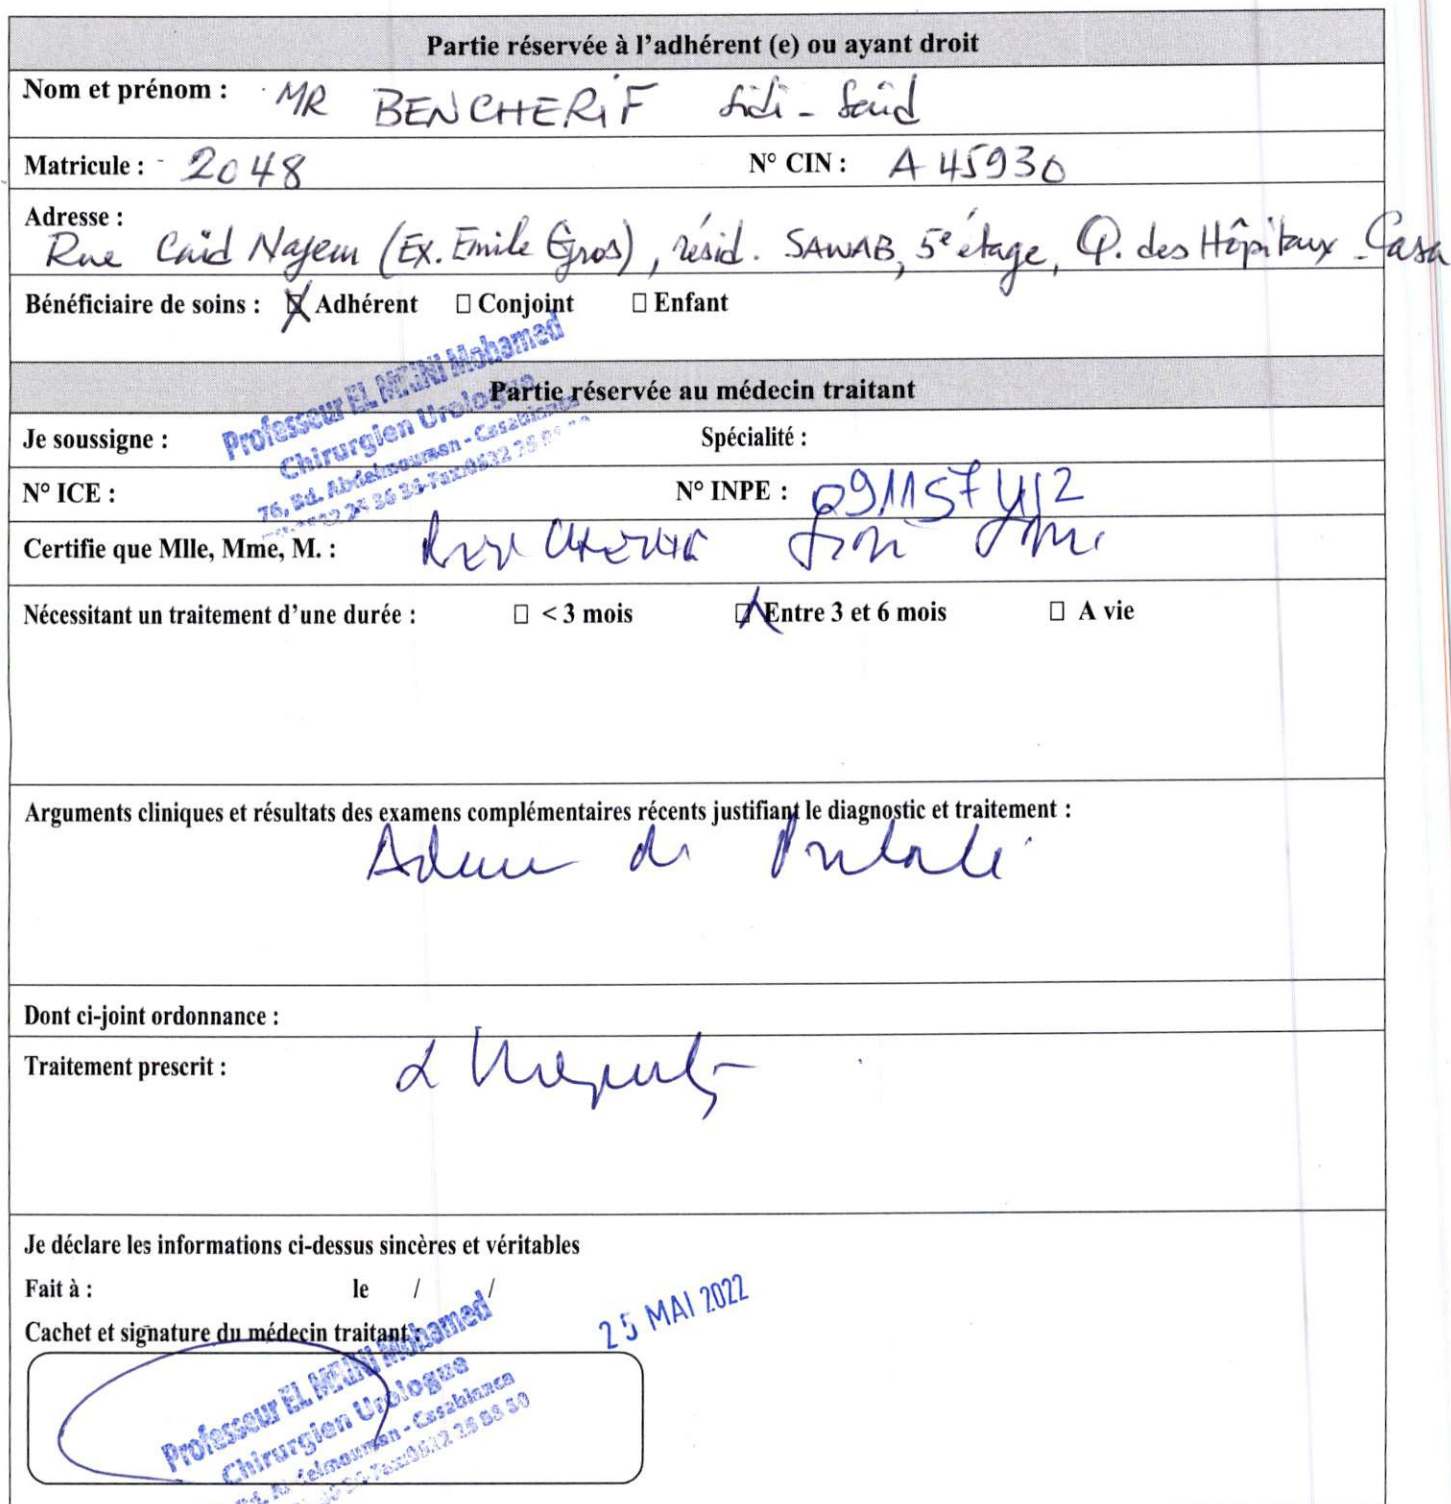 Partie réservée à l'adhérent (e) ou ayant droit
Nom et prénom : MR BENCHERIF Sidi - Saïd
Matricule : 2048 N° CIN : A 45930
Adresse :
Rue Caïd Najem (Ex. Emile Gros), résid. SAWAB, 5e étage, Q. des Hôpitaux - Casa
Bénéficiaire de soins : ☒ Adhérent □ Conjoint □ Enfant
Partie réservée au médecin traitant
Professeur EL Mohamed
Chirurgien Urologue
76, Bd. Abdelmoumen - Casablanca
Je soussigne : Spécialité :
N° ICE : N° INPE : 091157412
Certifie que Mlle, Mme, M. :
Nécessitant un traitement d'une durée : □ < 3 mois ☒ Entre 3 et 6 mois □ A vie
Arguments cliniques et résultats des examens complémentaires récents justifiant le diagnostic et traitement :
Dont ci-joint ordonnance :
Traitement prescrit :
Je déclare les informations ci-dessus sincères et véritables
Fait à : le / /
25 MAI 2022
Cachet et signature du médecin traitant :
Professeur EL Mohamed
Chirurgien Urologue
Casablanca